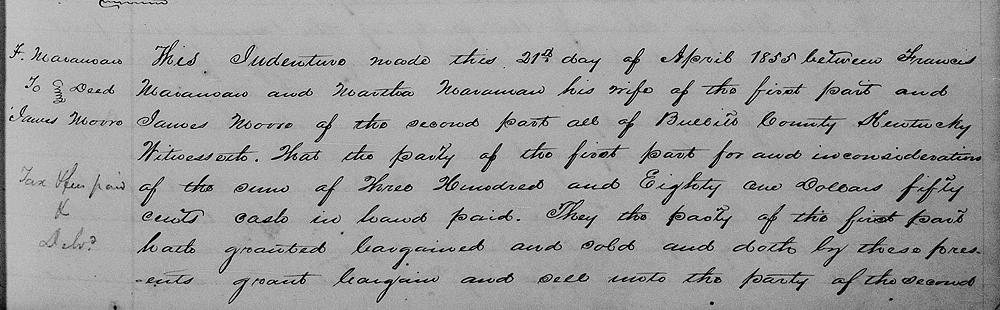 F. Maraman
To Deed
James Moore
Tax & fees paid
&
Delvd
This Indenture made this 21st day of April 1855 between Francis
Maraman and Martha Maraman his wife of the first part and
James Moore of the second part all of Bullitt County Kentucky
Witnesseth. That the party of the first part for and inconsideration
of the sum of Three Hundred and Eighty one Dollars fifty
cents cash in hand paid. They the party of the first part
hath granted bargained and sold and doth by these pres-
-ents grant bargain and sell unto the party of the second